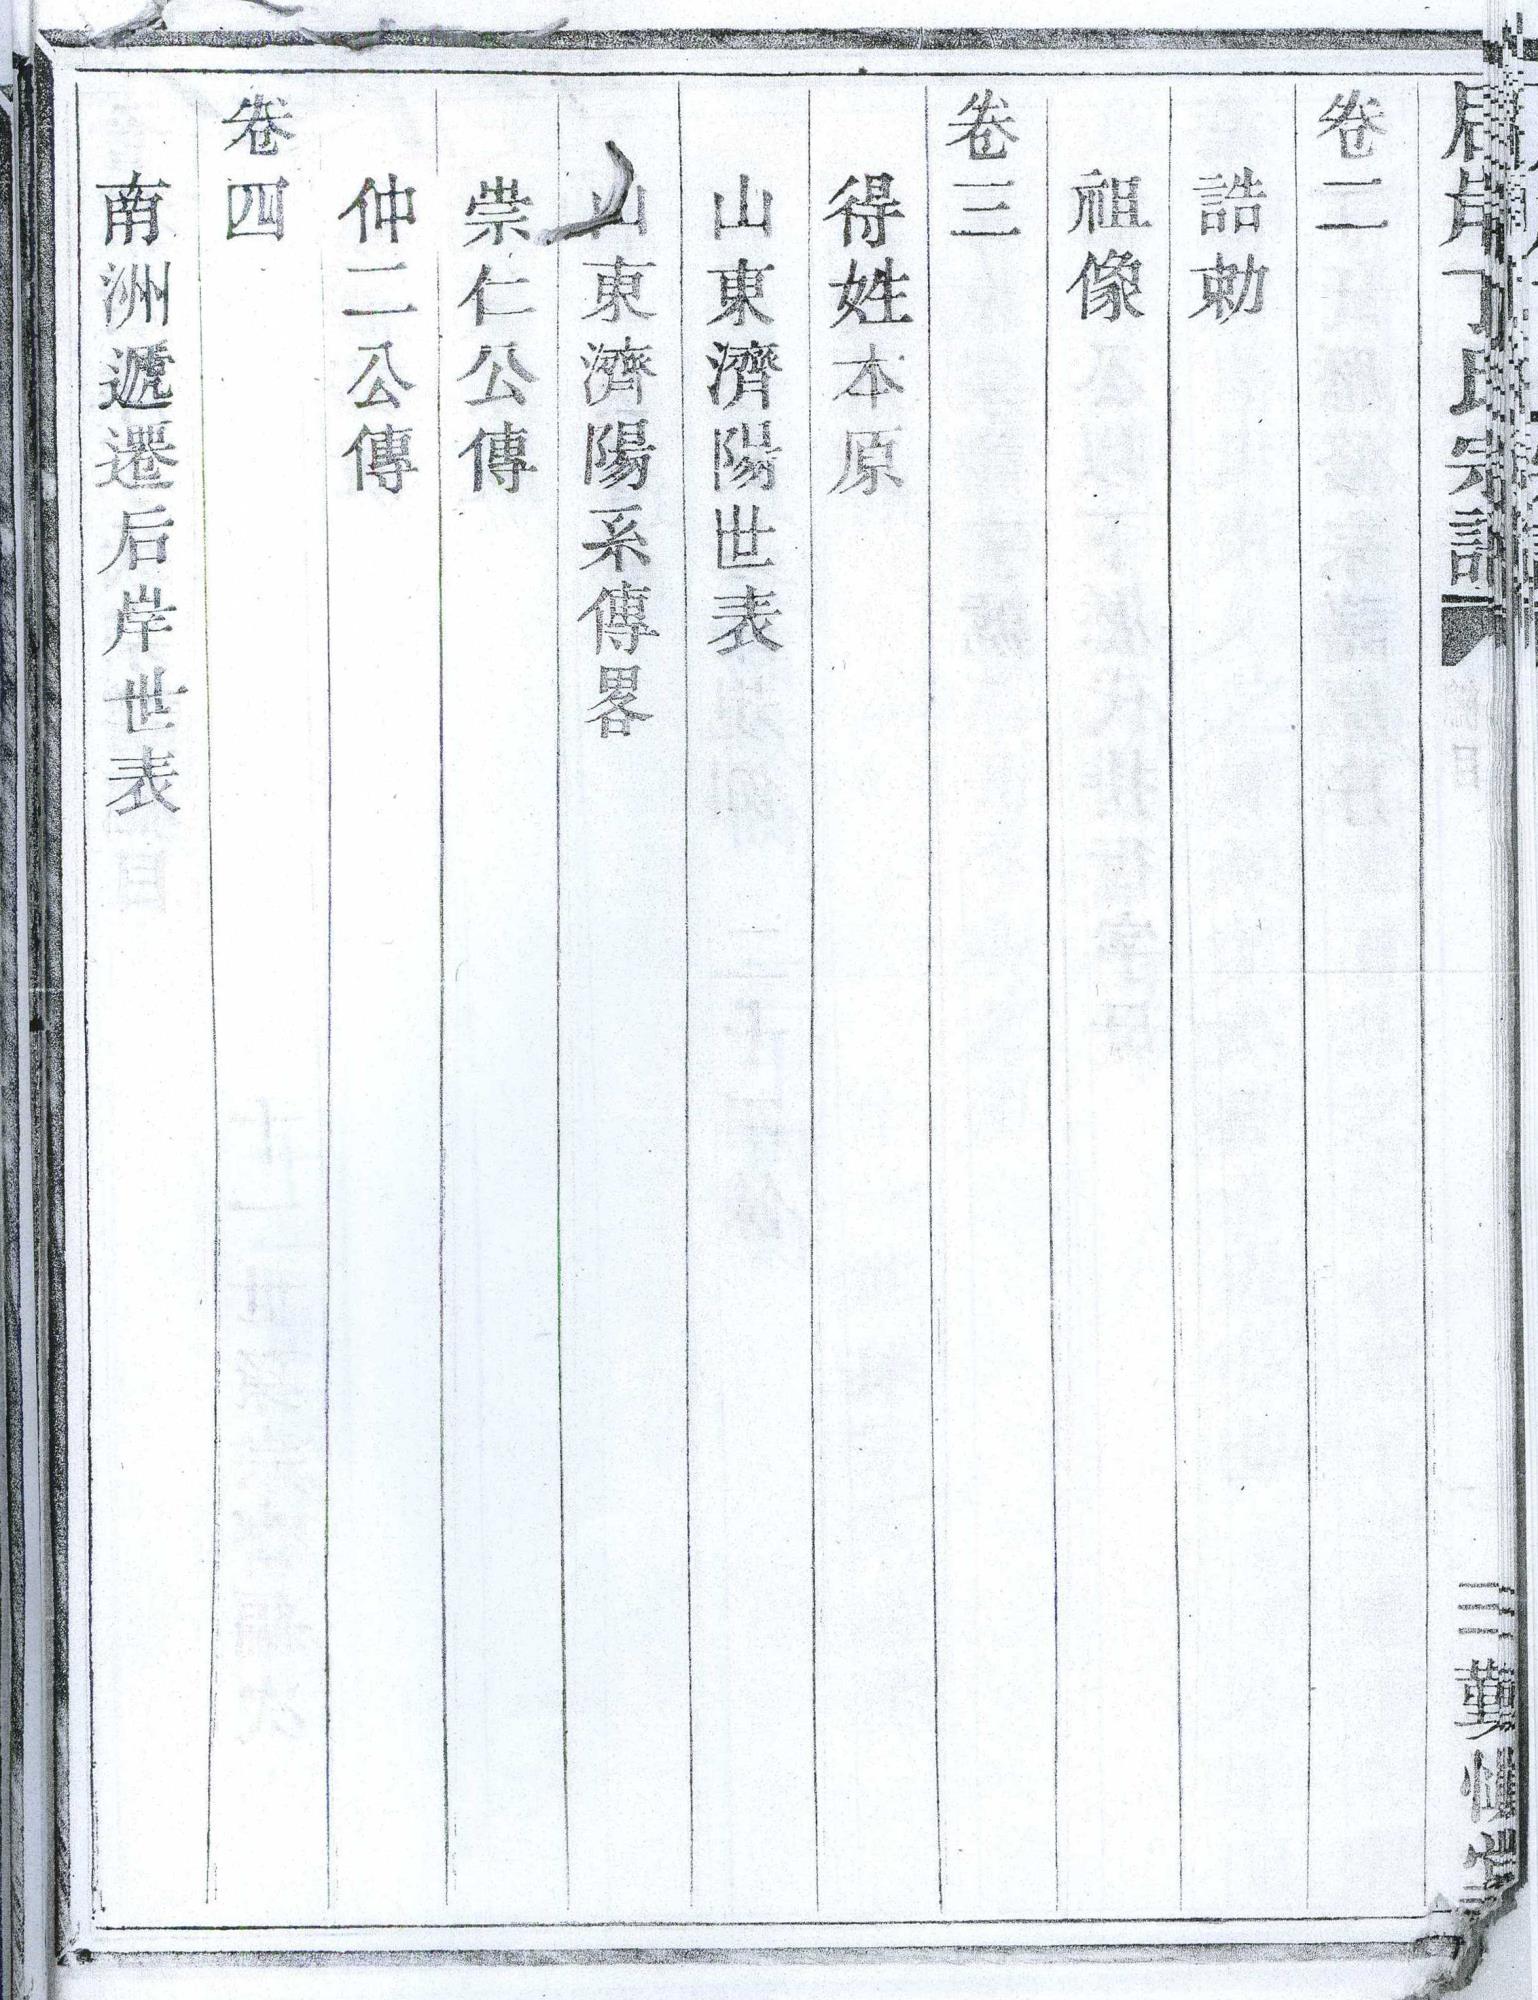 后岸丁氏宗譜
總目
三勤慎堂
卷二
誥勅
祖像
卷三
得姓本原
山東濟陽世表
山東濟陽系傳畧
崇仁公傳
仲二公傳
卷四
南洲遞遷后岸世表